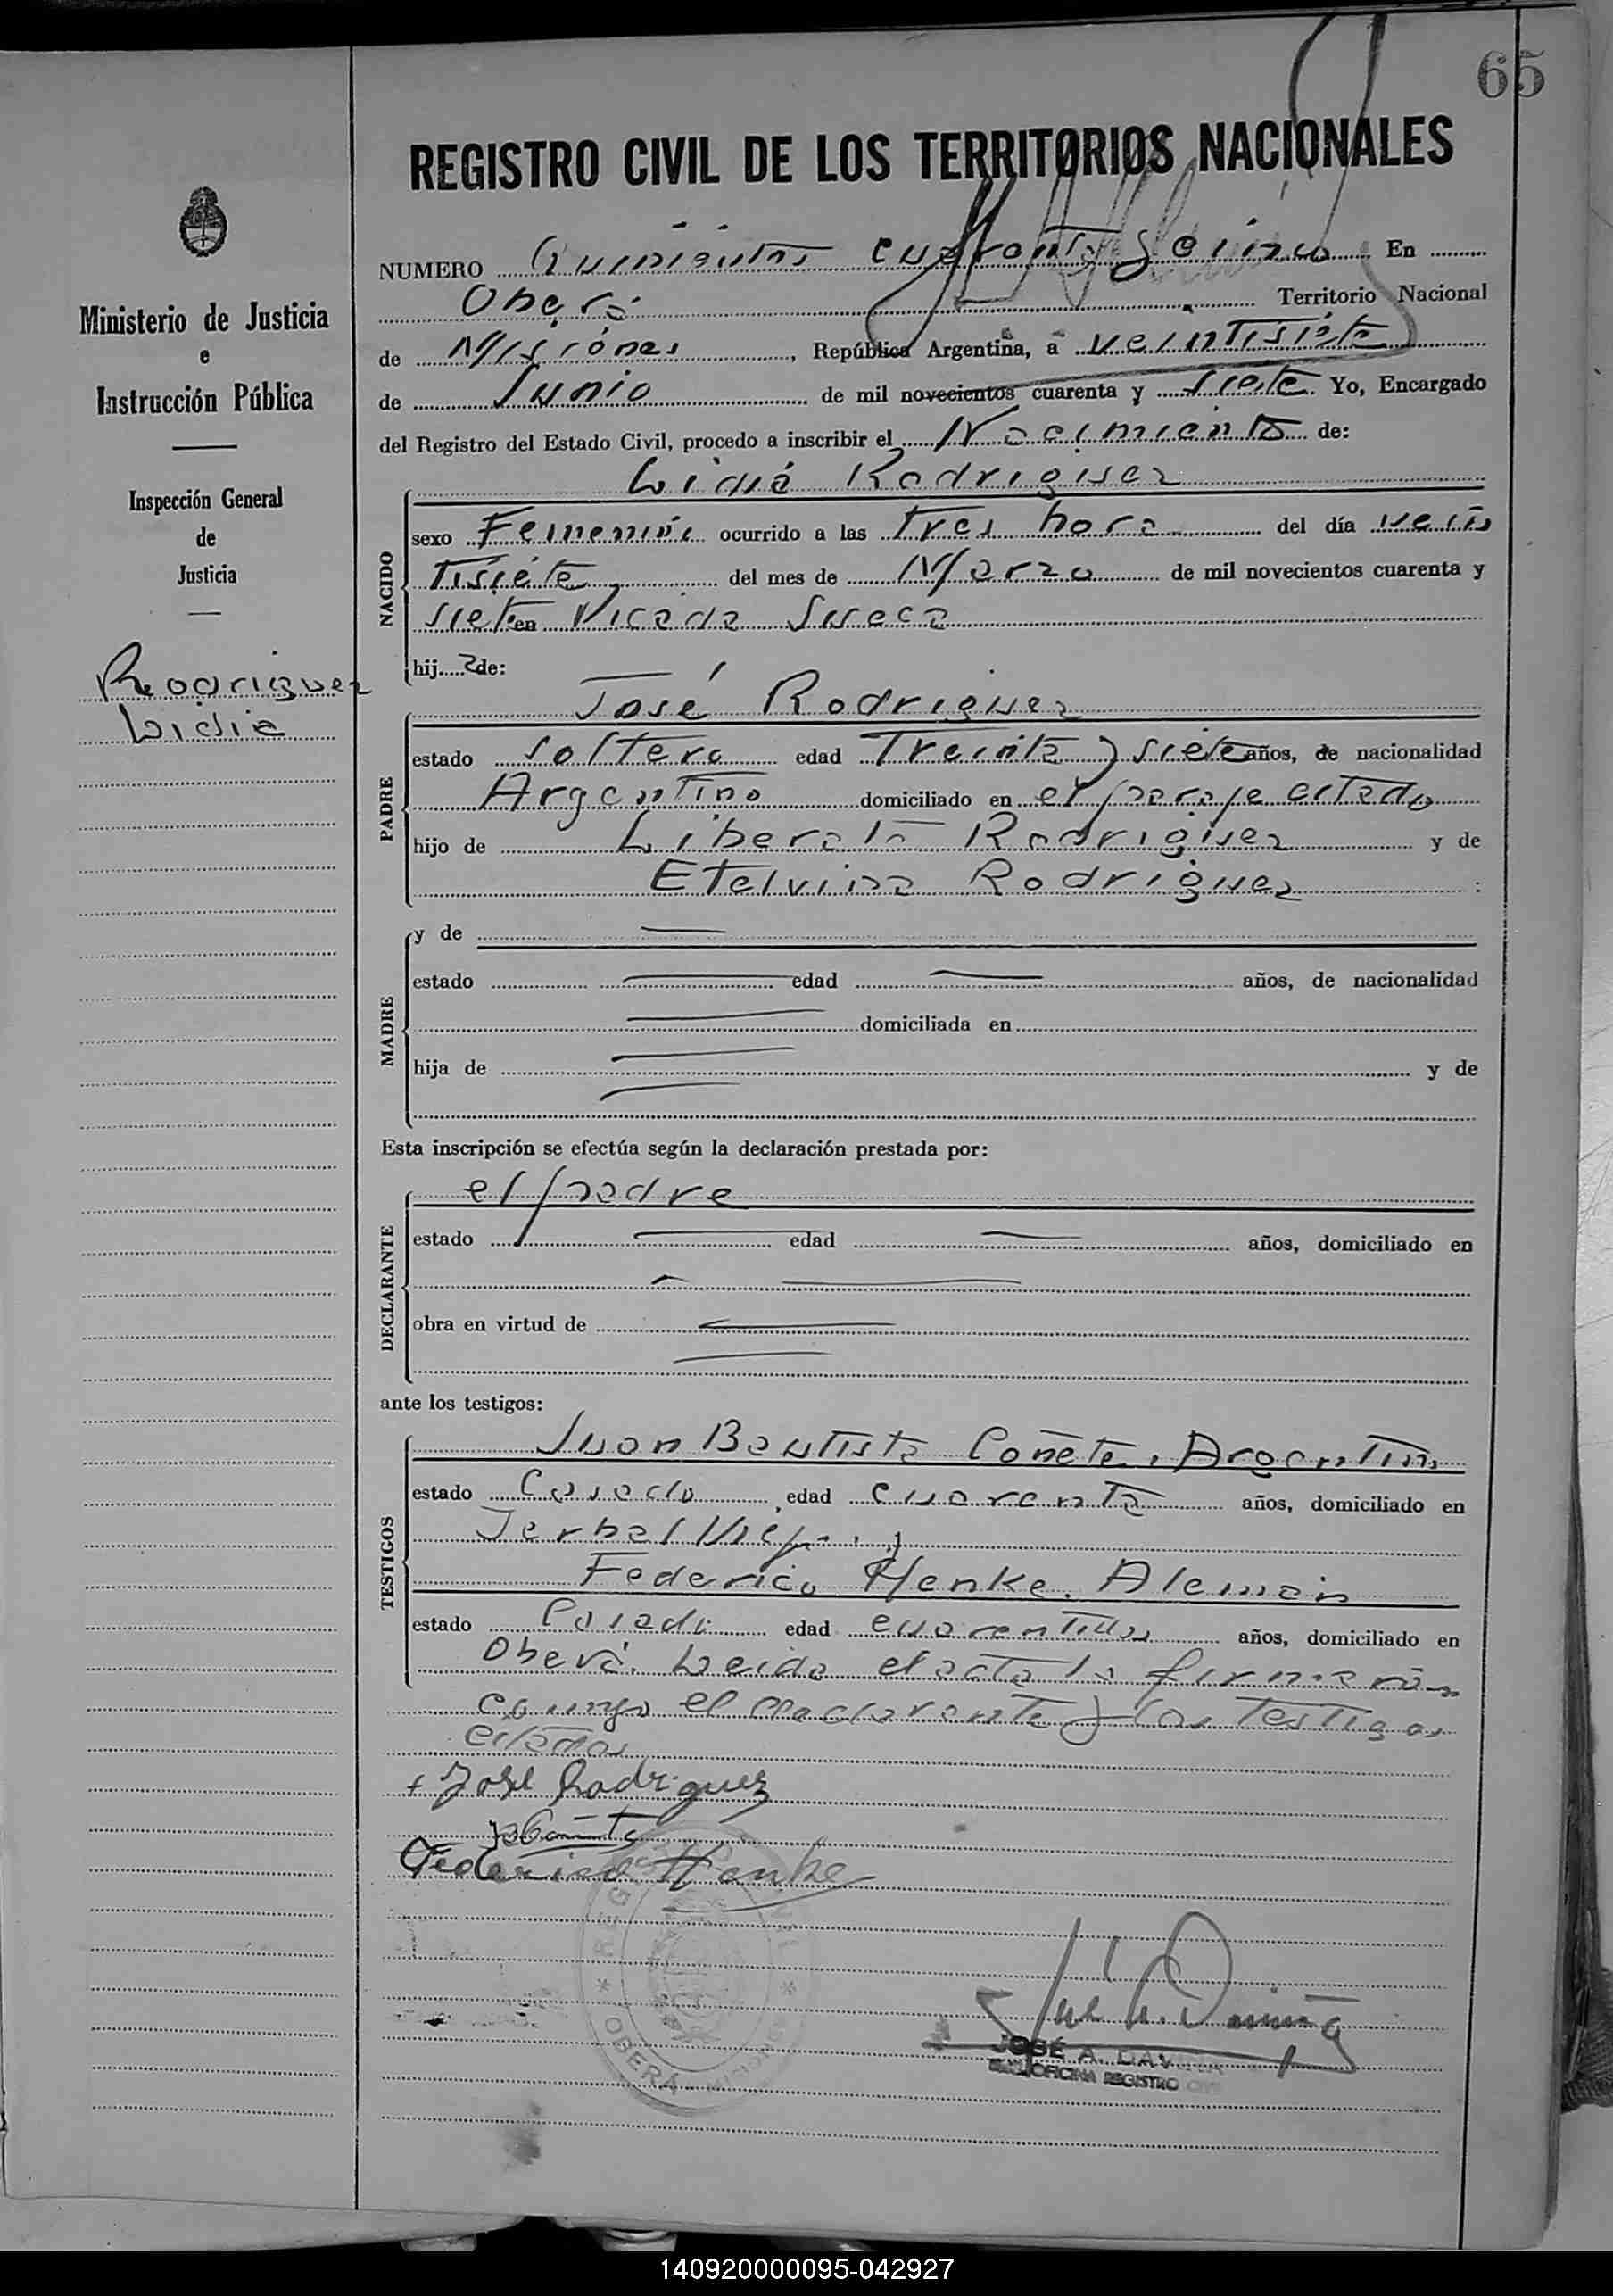 65
REGISTRO CIVIL DE LOS TERRITORIOS NACIONALES
NUMERO Quinientos cuarenta y cinco En
Oberá Territorio Nacional
de Misiones, República Argentina, a veintisiete
de Junio de mil novecientos cuarenta y siete Yo, Encargado
del Registro del Estado Civil, procedo a inscribir el Nacimiento de:
Ministerio de Justicia
e
Instrucción Pública
Inspección General
de
Justicia
Rodriguez
Lidia
NACIDO
Lidia Rodriguez
sexo Femenino ocurrido a las Tres hora del día vein
Tisiete del mes de Marzo de mil novecientos cuarenta y
siete en Picada Sueca
hij a de:
PADRE
José Rodriguez
estado soltero edad Treinta y siete años, de nacionalidad
Argentino domiciliado en el paraje citado
hijo de Liberato Rodriguez y de
Etelvina Rodriguez :
MADRE
y de
estado edad años, de nacionalidad
domiciliada en
hija de y de
Esta inscripción se efectúa según la declaración prestada por:
DECLARANTE
el padre
estado edad años, domiciliado en
obra en virtud de
ante los testigos:
TESTIGOS
Juan Bautista Cañete, Argentino
estado Casado, edad cuarenta años, domiciliado en
Yerbal Viejo y
Federico Henke, Alemán
estado Casado edad cuarentidos años, domiciliado en
Oberá. Leida el acta la firmaron
conmigo el declarante y los testigos
citados
+ José Rodriguez
Federico Henke
REGISTRO CIVIL
* OBERÁ - MISIONES *
JOSÉ A. DAVIÑA
OFICINA REGISTRO CIVIL
140920000095-042927